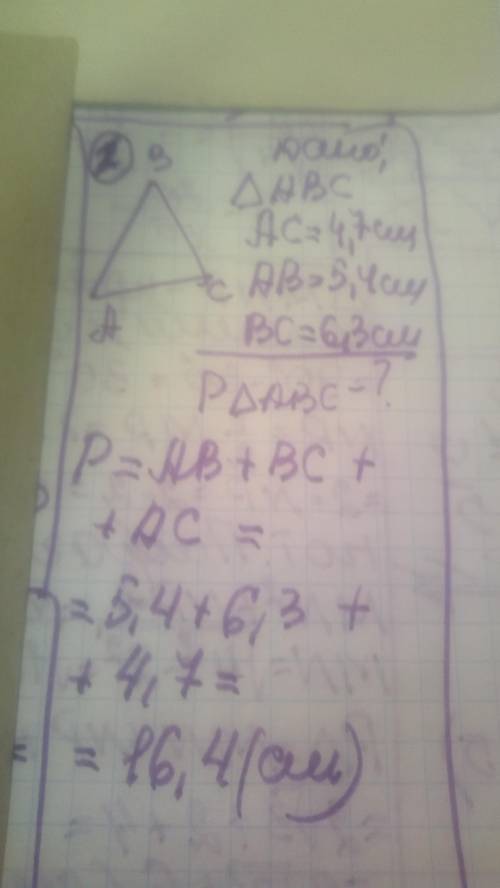 2
B
Дано:
△ABC
AC=4,7см
AB=5,4см
C
BC=6,3см
A
P△ABC-?
P=AB+BC+
+AC=
=5,4+6,3+
+4,7=
=16,4(см)